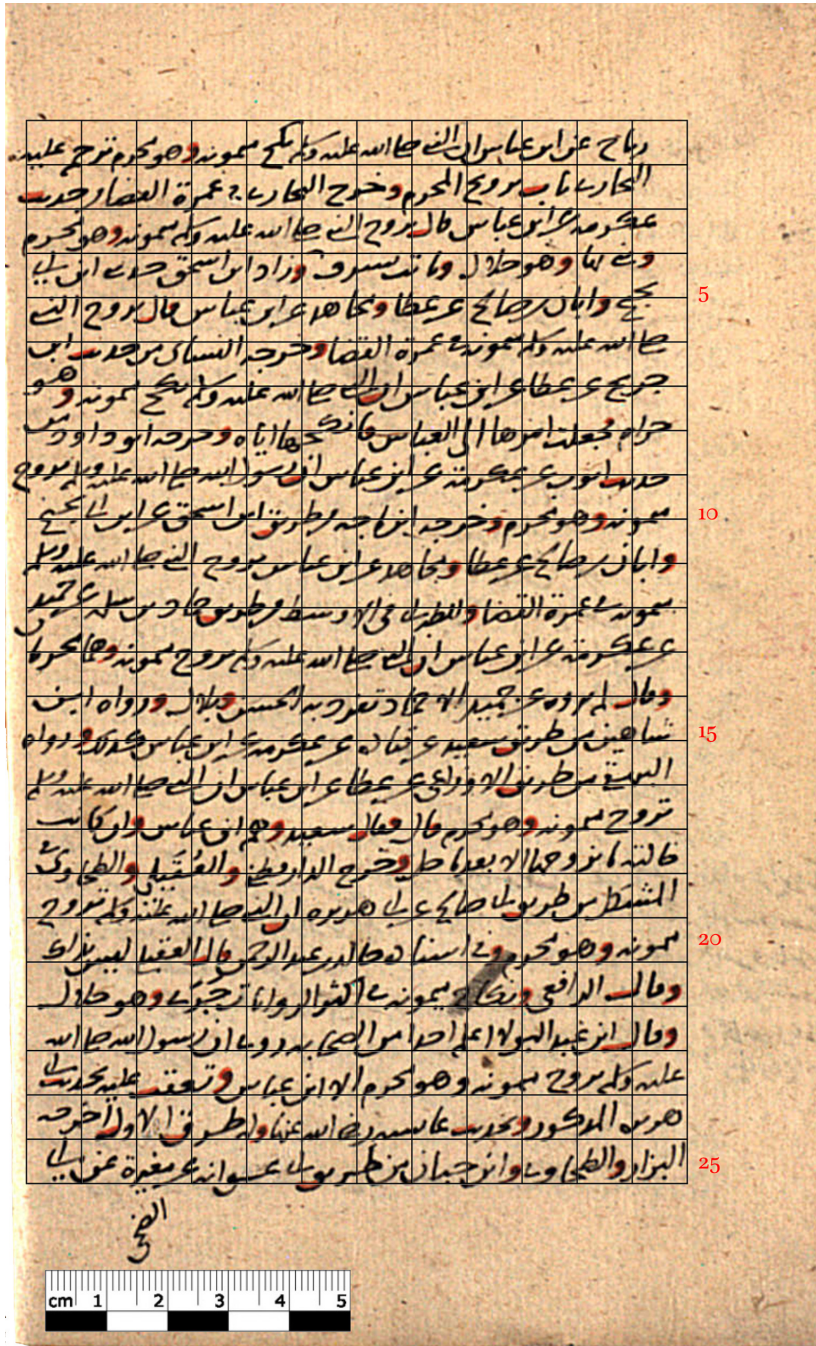 رباح عن ابن عباس ان النبي صلى الله عليه وسلم نكح ميمونه وهو محرم ترجم عليه
البخاري باب تزويج المحرم وخرج البخاري في عمرة القضا من حديث
عكرمه عن ابن عباس قال تزوج النبي صلى الله عليه وسلم ميمونه وهو محرم
وبنى بها وهو حلال وماتت بسرف وزاد ابن اسحق حدثني ابن ابي
نجيح وابان بن صالح عن عطا ومجاهد عن ابن عباس قال تزوج النبي
صلى الله عليه وسلم ميمونه في عمرة القضا وخرجه النسائي من حديث ابن
جريج عن عطا عن ابن عباس ان النبي صلى الله عليه وسلم نكح ميمونه وهو
حرام جعلت امرها الى العباس فانكحها اياه وخرجه ابو داود من
حديث ايوب عن عكرمة عن ابن عباس ان رسول الله صلى الله عليه وسلم تزوج
ميمونه وهو محرم وخرجه ابن ماجه من طريق ابن اسحق عن ابن ابي نجيح
وابان بن صالح عن عطا ومجاهد عن ابن عباس تزوج النبي صلى الله عليه وسلم
ميمونه في عمرة القضا وللطبراني في الاوسط من طريق حماد بن سلمه عن حميد
عن عكرمة عن ابن عباس ان النبي صلى الله عليه وسلم تزوج ميمونه وهما محرمان
وقال لم يروه عن حميد الا حماد تفرد به الحسن بن بلال ورواه ابن
شاهين من طريق سعيد عن قتاده عن عكرمه عن ابن عباس كذلك ورواه
البيهقي من طريق الاوزاعي عن عطا عن ابن عباس ان النبي صلى الله عليه وسلم
تزوج ميمونه وهو محرم قال فقال سعيد وهم ابن عباس وان كانت
خالته ما تزوجها الا بعد ما حل وخرج الدارقطني والعقيلي والطحاوي في
المشكل من طريق ابي صالح عن ابي هريره ان النبي صلى الله عليه وسلم تزوج
ميمونه وهو محرم وفي اسناده خالد بن عبد الرحمن قال العقيلي ليس بذاك
وقال الرافعي ونكاح ميمونه في اكثر الروايات جرى وهو حلال
وقال ابن عبد البر لا اعلم احدا من الصحابه روى ان رسول الله صلى الله
عليه وسلم تزوج ميمونه وهو محرم الا ابن عباس وتعقب عليه بحديث ابي
هريره المذكور وبحديث عايشه رضي الله عنها وله طريق الاول اخرجه
البزار والطحاوي وابن حبان من طريق ابي عوانه عن مغيرة عن ابي
الضحى
5
10
15
20
25
cm 1 2 3 4 5